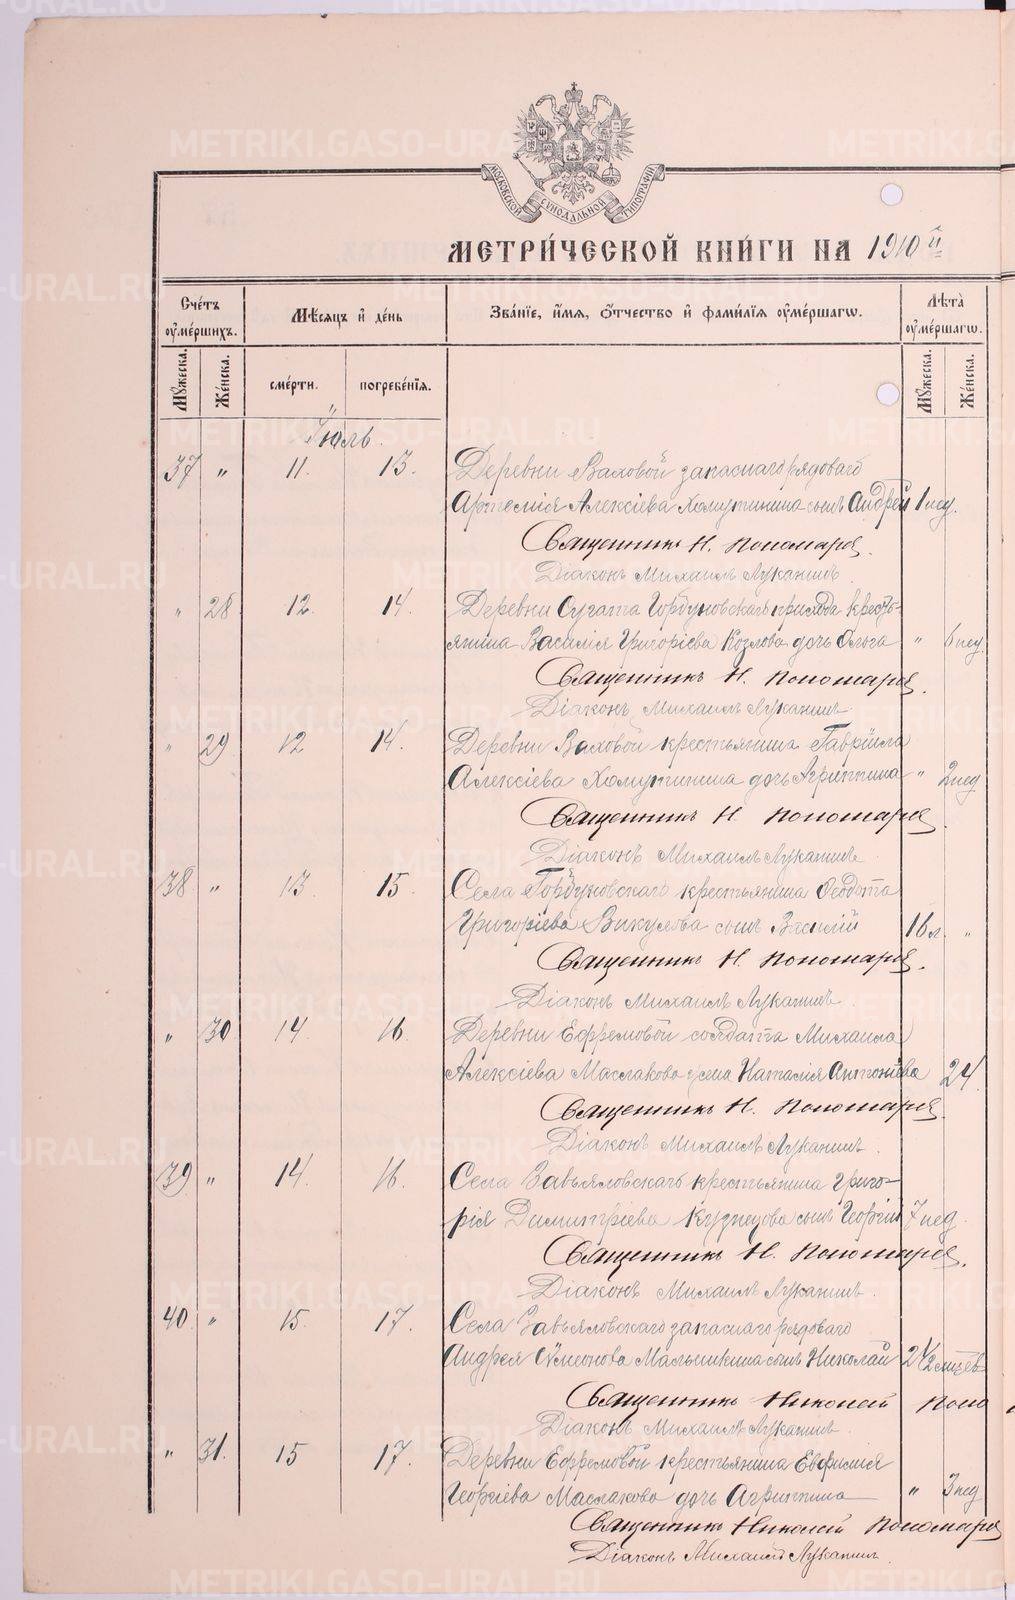 МОСКОВСКОЙ СѴНОДАЛЬНОЙ ТИПОГРАФІИ
МЕТРИ́ЧЕСКОЙ КНИ́ГИ НА 1910й
Сче́тъ ᲂу҆ме́ршихъ.
Мѣ́сяцъ и҆ де́нь
Зва́нїе, и҆́мѧ, ѻ҆́тчество и҆ фами́лїѧ ᲂу҆ме́ршагѡ.
Лѣта̀ ᲂу҆ме́ршагѡ.
Мꙋ́жеска.
Же́нска.
сме́рти.
погребе́нїѧ.
Мꙋ́жеска.
Же́нска.
Іюль.
37 " 11. 13. ДеревниВаховой запаснаго рядоваго
Артемія Алексіева Хомутинина сынъ Андрей 1 нед.
Священникъ Н. Пономарев.
Діаконъ Михаилъ Луканинъ.
" 28 12. 14. Деревни Сугата Горбуновскаго прихода крестьянина
Василія Григоріева Козлова дочь Ольга " 6 нед.
Священникъ Н. Пономарев.
Діаконъ Михаилъ Луканинъ
" 29 12 14. Деревни Ваховой крестьянина Гавріила
Алексіева Хомутинина дочь Агриппина " 2 нед
Священникъ Н. Пономарев.
Діаконъ Михаилъ Луканинъ
38 " 13 15. Села Горбуновскаго крестьянина Ѳеодота
Григоріева Викулова сынъ Василій 16 л. "
Священникъ Н. Пономарев.
Діаконъ Михаилъ Луканинъ.
" 30 14 16. Деревни Ефремовой солдата Михаила
Алексіева Маслакова жена Наталія Антоніева 24
Священникъ Н. Пономарев.
Діаконъ Михаилъ Луканинъ.
39 " 14. 16. Села Завьяловскаго крестьянина Григо-
рія Димитріева Кузнецова сынъ Георгій 7 нед.
Священникъ Н. Пономарев.
Діаконъ Михаилъ Луканинъ.
40. " 15. 17. Села Завьяловскаго запаснаго рядоваго
Андрея Сѵмеонова Малышкина сынъ Николай 2 1/2 мѣсев.
Священникъ Николай Поно
Діаконъ Михаилъ Луканинъ
" 31. 15 17. Деревни Ефремовой крестьянина Евфимія
Георгіева Маслакова дочь Агриппина " 3 нед
Священникъ Николай Пономарев
Діаконъ Михаилъ Луканинъ.
METRIKI.GASO-URAL.RU